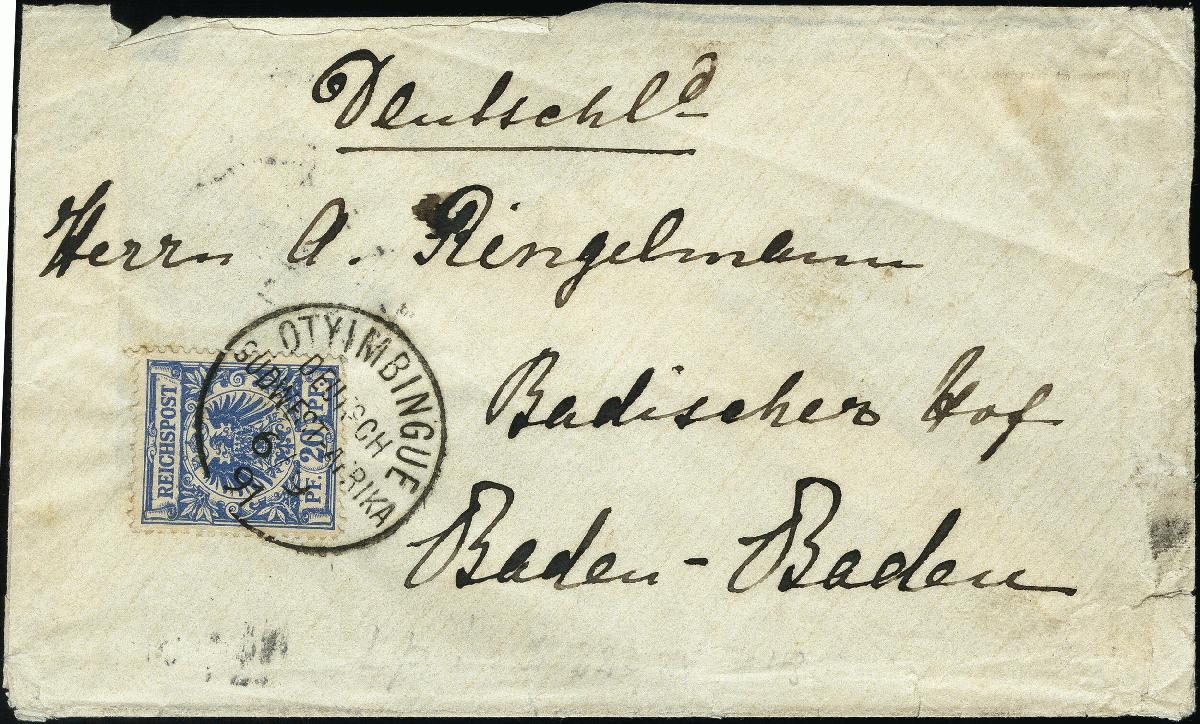 Deutschld
Herrn A. Ringelmann
Badischer Hof
Baden-Baden
OTYIMBINGUE
DEUTSCH
SÜDWEST-AFRIKA
6 9
97
REICHSPOST
PF. 20 PF.